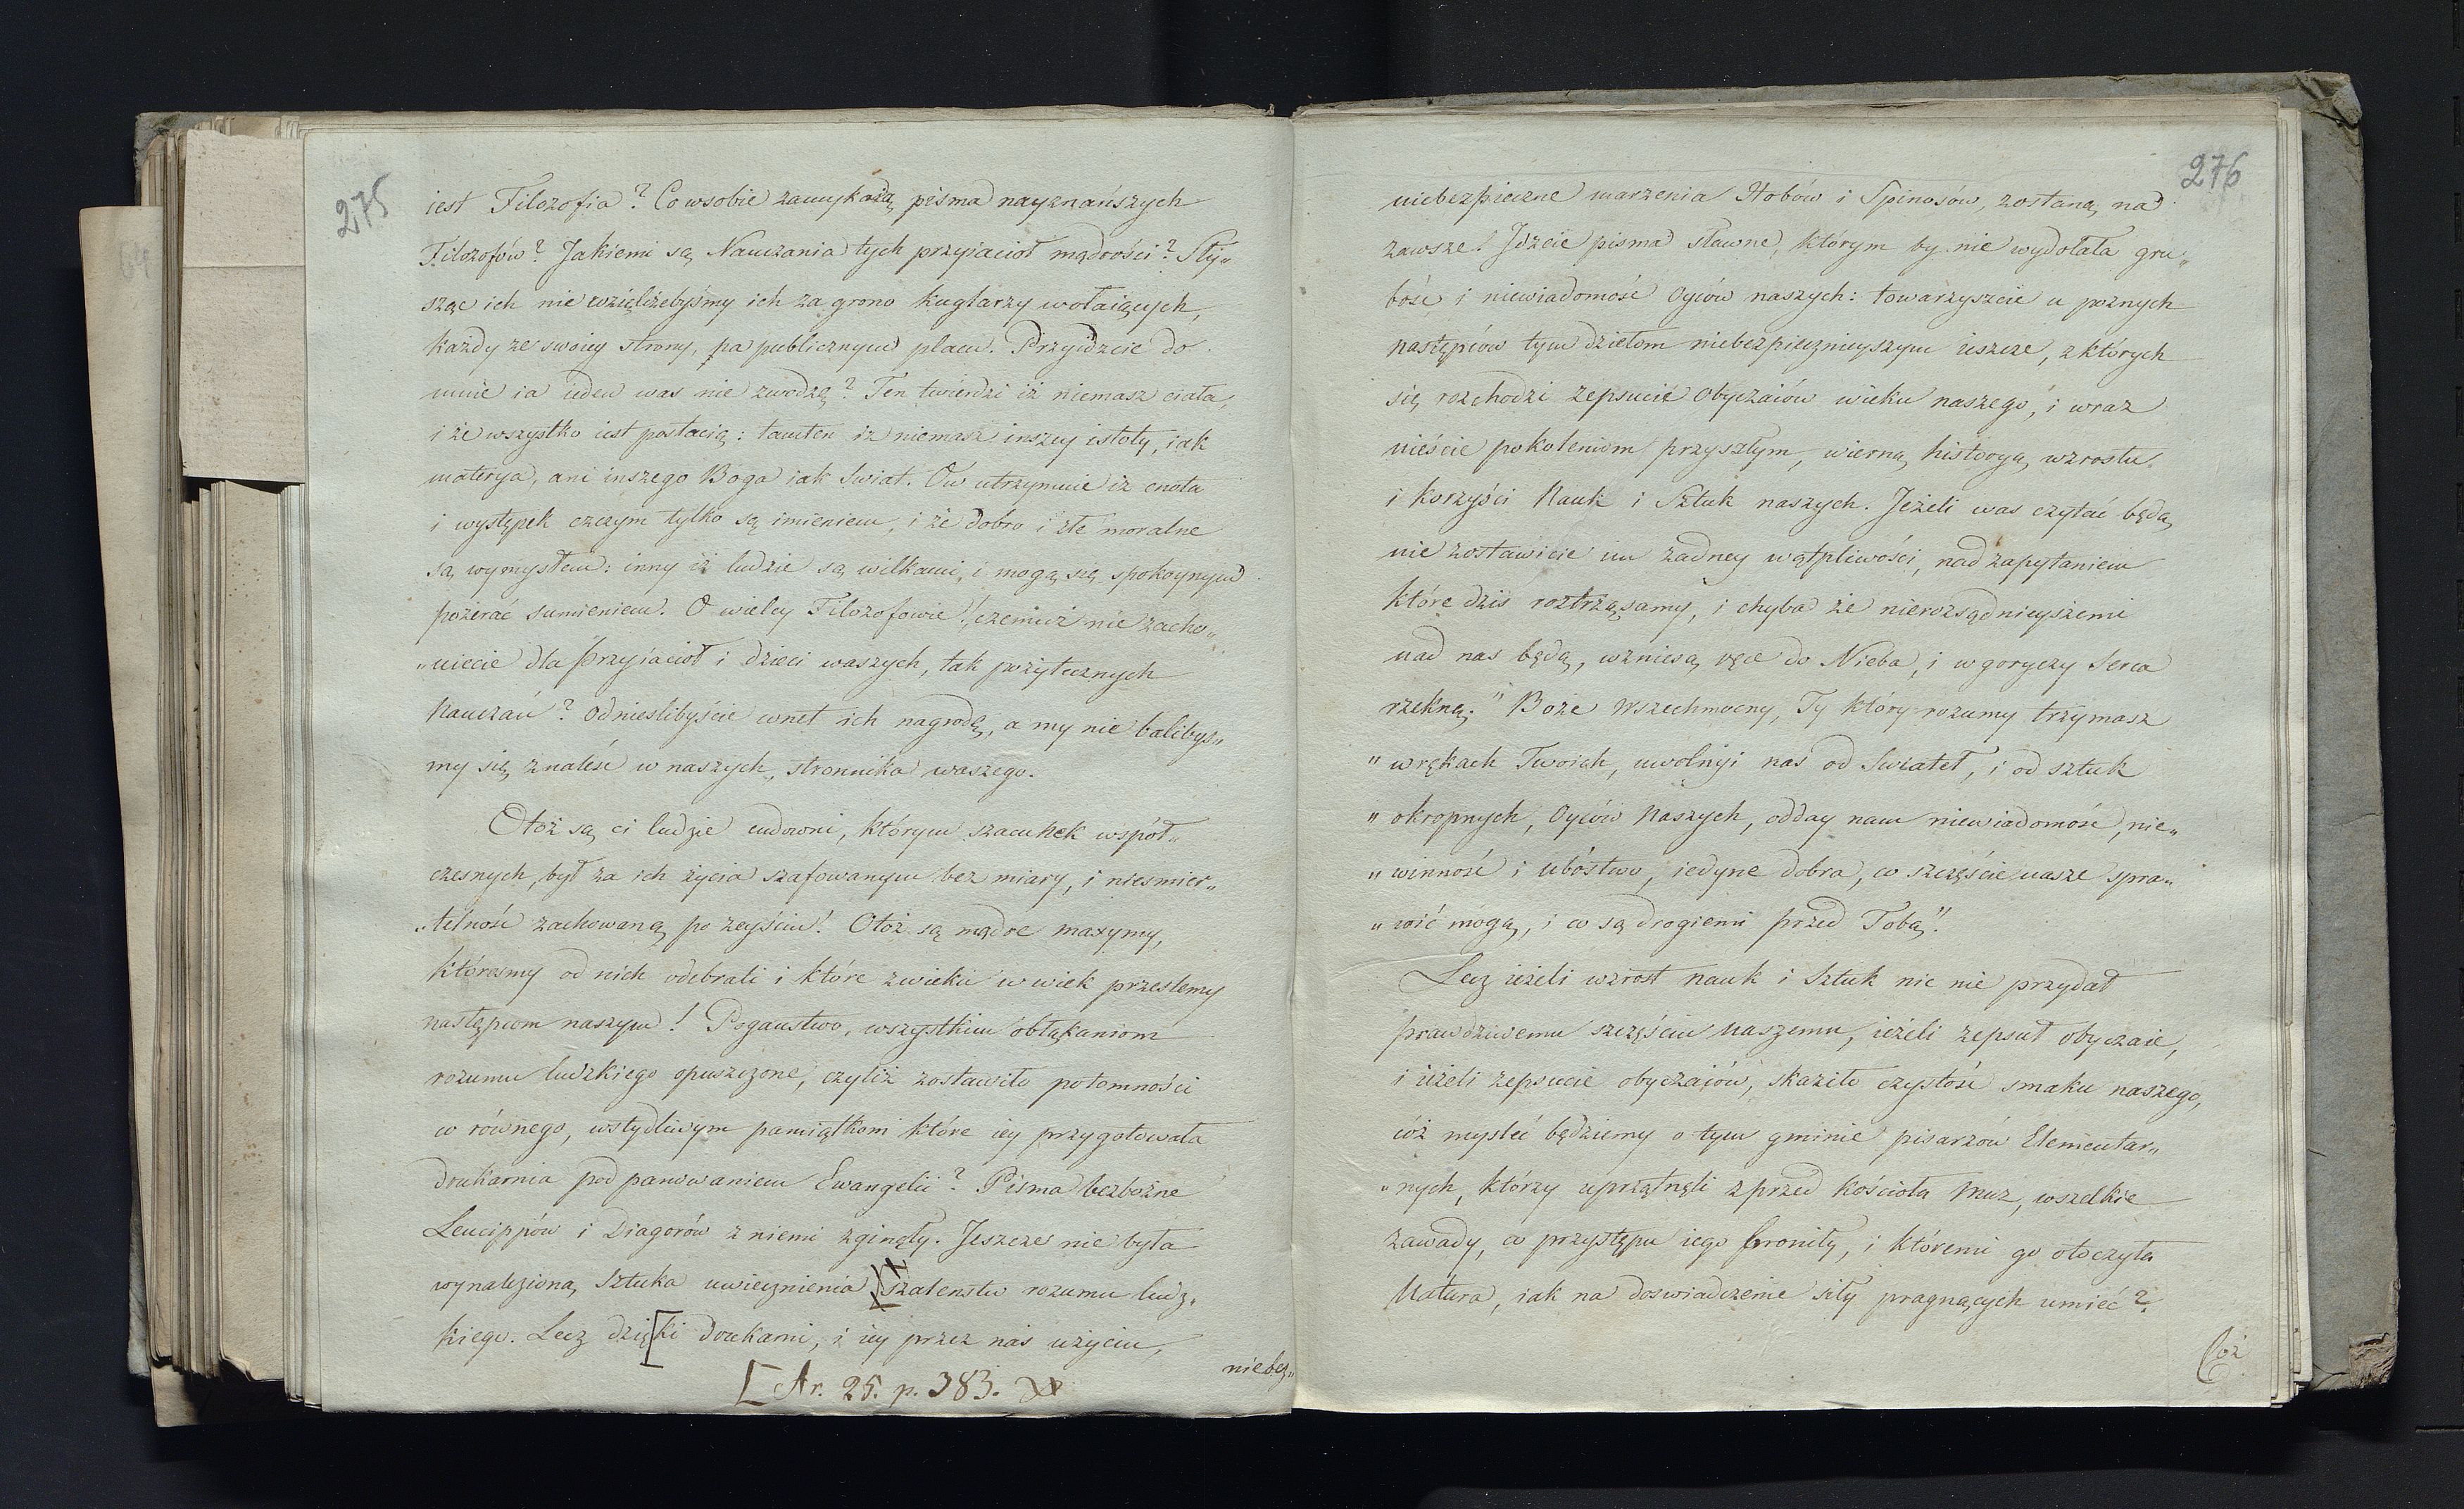 275
iest Filozofia? Co wsobie zamykaią pisma nayznańszych
Filozofów? Jakiemi są Nauczania tych przyiacioł mądrości? Sły„
sząc ich nie wzięliżebyśmy ich za grono kuglarzy wołaiących,
każdy ze swoiey strony, na publicznym placu. Przyidzcie do
mnie ia ieden was nie zwodzę? Ten twierdzi iż niemasz ciała,
i że wszystko iest postacią: tamten iz niemasz inszey istoty, iak
materya, ani inszego Boga iak Swiat. Ow utrzymuie iz cnota
i występek czczym tylko są imieniem, i że dobro i złe moralne
są wymysłem: inny iż ludzie są wilkami, i mogą się spokoynym
pożerać sumieniem. O wielcy Filozofowie! czemuż nie zacho„
„wiecie dla przyiacioł i dzieci waszych, tak pożytecznych
Nauczań? odnieslibyście wnet ich nagrodę, a my nie balibys„
my się znaleść w naszych, stronnika waszego.
Otóż są ci ludzie cudowni, którym szacunek współ„
czesnych, był za ich życia szafowanym bez miary, i niesmier„
„telność zachowaną po zeyściu! Otóż są mądre maxymy,
którasmy od nich odebrali i które zwieku w wiek przeslemy
następcom naszym! Pogaństwo, wszystkim obłąkaniom
rozumu ludzkiego opuszczone, czyliż zostawiło potomności
co równego, wstydliwym pamiątkom które iey przygotowała
drukarnia pod panowaniem Ewangelii? Pisma bezbożne
Leucippów i Diagorów z niemi zginęły. Jeszcze nie była
wynalezioną sztuka uwiecznienia szaleństw rozumu ludz„
kiego. Lecz dzię[ki drukarni, i iey przez nas użyciu,
niebez„
[ Ar. 25. p. 383.
276
niebezpieczne marzenia Hobów i Spinosów, zostaną na
zawsze! Jdzcie pisma sławne, którym by nie wydołała gru„
bość i niewiadomość Oyców naszych: towarzyszcie u poznych
następców tym dziełom niebezpiecznieyszym ieszcze, z których
się rozchodzi zepsucie obyczaiów wieku naszego, i wraz
nieście pokoleniom przyszłym, wierną historyą wzrostu
i korzyści Nauk i Sztuk naszych. Jeżeli was czytać będą
nie zostawicie im żadney wątpliwości, nad zapytaniem
które dzis roztrząsamy, i chyba że nierozsądnieyszemi
nad nas będą, wzniesą ręce do Nieba, i w goryczy Serca
rzekną: " Boże Wszechmocny, Ty który rozumy trzymasz
" w rękach Twoich, uwolnyi nas od Swiateł, i od sztuk
" okropnych, Oyców Naszych, odday nam niewiadomość, nie„
„ winność i ubóstwo, iedyne dobra, co szczęście nasze spra„
" wić mogą, i co są drogiemi przed Tobą"!
Lecz ieżeli wzrost nauk i Sztuk nic nie przydał
prawdziwemu szczęściu naszemu, ieżeli zepsuł obyczaie,
i ieżeli zepsucie obyczaiów, skaziło czystość smaku naszego,
cóż mysleć będziemy o tym gminie pisarzów Elementar„
„nych, którzy uprzątnęli z przed kościoła Muz, wszelkie
zawady, co przystępu iego broniły, i któremi go otoczyła
Natura, iak na doswiadczenie siły pragnących umieć?
Coż